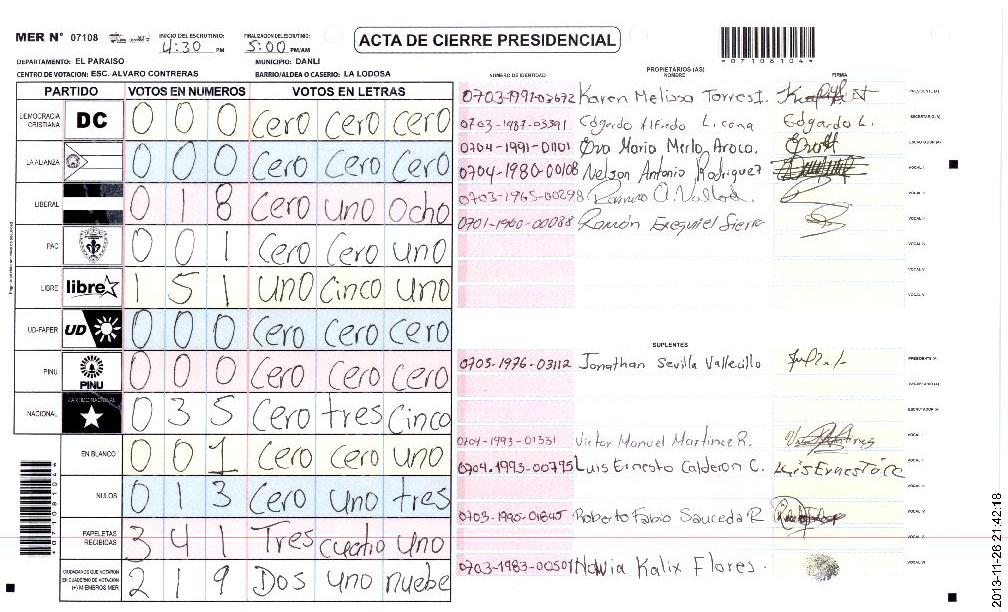 MER N° 07108
INICIO DEL ESCRUTINIO: 4:30 PM
FINALIZACION DEL ESCRUTINIO: 5:00 PM/AM
ACTA DE CIERRE PRESIDENCIAL
*07108104*
DEPARTAMENTO: EL PARAISO MUNICIPIO: DANLI
CENTRO DE VOTACION: ESC. ALVARO CONTRERAS BARRIO/ALDEA O CASERIO: LA LODOSA
PARTIDO VOTOS EN NUMEROS VOTOS EN LETRAS
DEMOCRACIA CRISTIANA DC 0 0 0 Cero Cero Cero
LA ALIANZA 0 0 0 Cero Cero Cero
LIBERAL 0 1 8 Cero uno Ocho
PAC 0 0 1 Cero Cero uno
LIBRE libre 1 5 1 Uno Cinco uno
UD-FAPER UD 0 0 0 Cero Cero Cero
PINU PINU 0 0 0 Cero Cero Cero
NACIONAL PARTIDO NACIONAL 0 3 5 Cero tres Cinco
EN BLANCO 0 0 1 Cero Cero uno
NULOS 0 1 3 Cero uno tres
PAPELETAS RECIBIDAS 3 4 1 Tres cuatro uno
CIUDADANOS QUE VOTARON EN CUADERNO DE VOTACION (+) MIEMBROS MER 2 1 9 Dos uno nuebe
*07108104*
PROPIETARIOS (AS)
NUMERO DE IDENTIDAD NOMBRE FIRMA
0703-1991-03672 Karen Melissa Torres I. PRESIDENTE (A)
0703-1987-03391 Edgardo Alfredo Licona Edgardo L. SECRETARIO (A)
0704-1991-01101 Eva Maria Merlo Aroca. ESCRUTADOR (A)
0704-1980-00108 Nelson Antonio Rodriguez VOCAL I
0703-1965-00298 Ramiro A. VOCAL II
0701-1960-00088 Ramón Exequiel Sierra VOCAL III
VOCAL IV
VOCAL V
VOCAL VI
SUPLENTES
0705-1976-03112 Jonathan Sevilla Vallecillo PRESIDENTE (A)
SECRETARIO (A)
ESCRUTADOR (A)
0704-1993-01331 Victor Manuel Martinez R. VOCAL I
0704-1993-00795 Luis Ernesto Calderon C. Luis Ernesto CC VOCAL II
0703-1995-01845 Roberto Fabio Sauceda R VOCAL IV
VOCAL V
0703-1983-00501 Nowia Kalix Flores. VOCAL VI
2013-11-26 21:42:18